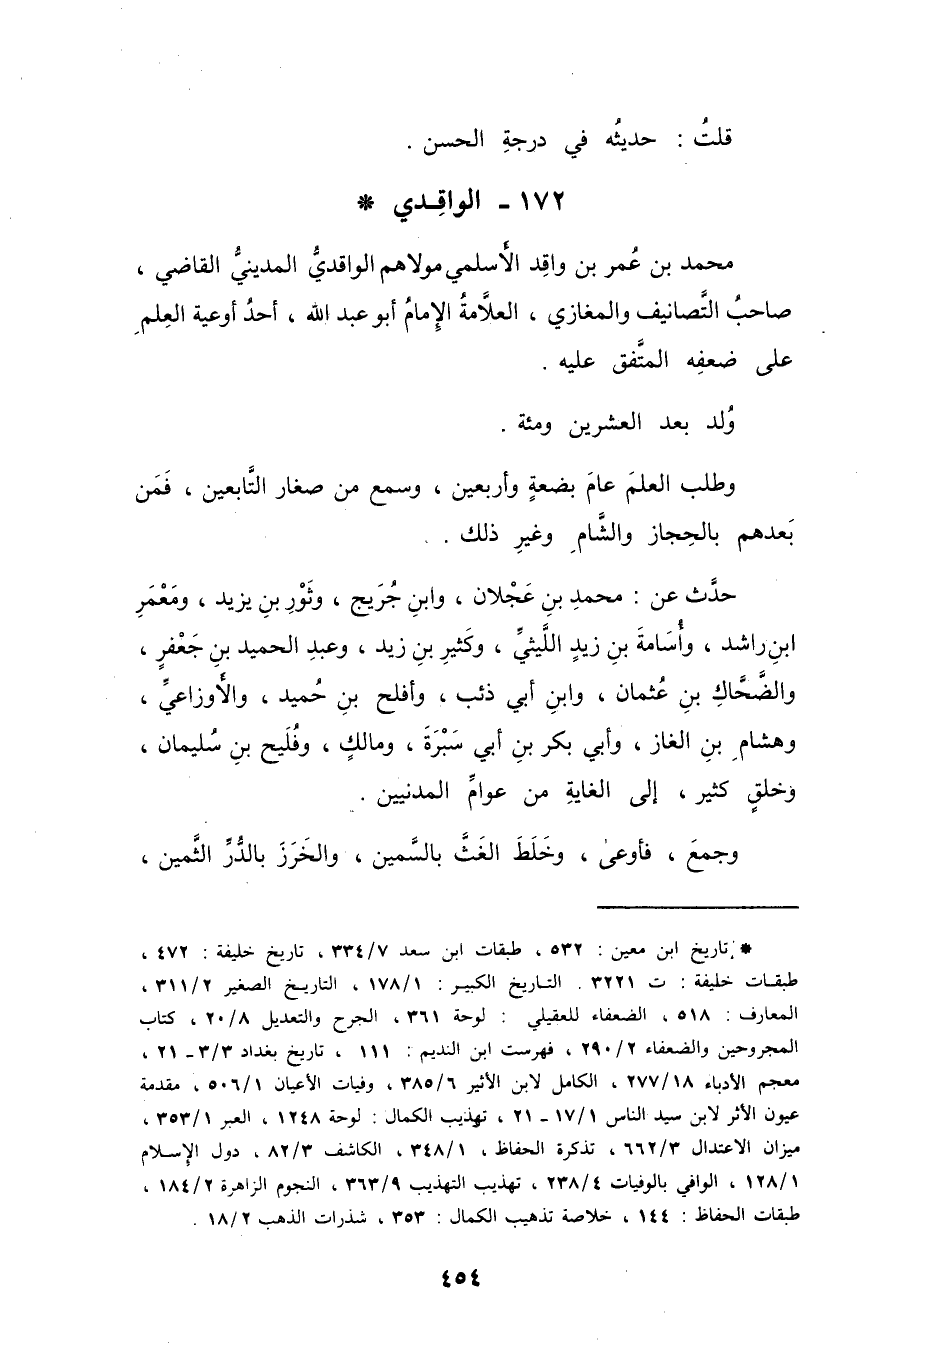 قلتُ : حديثُه في درجةِ الحسن .
١٧٢ - الواقِـدي *
محمد بن عُمر بن واقِد الأَسلمي مولاهم الواقديُّ المدينيُّ القاضي ،
صاحبُ التَّصانيف والمغازي ، العلَّامةُ الإِمامُ أبو عبد الله ، أحدُ أوعية العِلم
على ضعفِه المتَّفق عليه .
وُلد بعد العشرين ومئة .
وطلب العلمَ عامَ بضعةٍ وأربعين ، وسمع من صغار التَّابعين ، فَمَن
بَعدهم بالحِجاز والشَّامِ وغيرِ ذلك .
حدَّث عن : محمدِ بنِ عَجْلان ، وابنِ جُرَيج ، وثَوْرِ بنِ يزيد ، ومَعْمَرِ
ابنِ راشد ، وأُسَامةَ بنِ زيدٍ اللَّيثيِّ ، وكَثيرِ بنِ زيد ، وعبدِ الحميد بنِ جَعْفرٍ ،
والضَّحَّاكِ بنِ عُثمان ، وابنِ أبي ذئب ، وأفلح بنِ حُميد ، والأَوزاعيِّ ،
وهشامِ بنِ الغاز ، وأبي بكر بنِ أبي سَبْرَةَ ، ومالكٍ ، وفُلَيح بنِ سُليمان ،
وخلقٍ كثير ، إلى الغايةِ من عوامِّ المدنيين .
وجمعَ ، فأوعىٰ ، وخَلَطَ الغَثَّ بالسَّمين ، والخَرَزَ بالدُّرِّ الثَّمين ،
* تاريخ ابن معين : ٥٣٢ ، طبقات ابن سعد ٣٣٤/٧ ، تاريخ خليفة : ٤٧٢ ،
طبقـات خليفة : ت ٣٢٢١ . التـاريخ الكبيـر : ١٧٨/١ ، التاريـخ الصغير ٣١١/٢ ،
المعارف : ٥١٨ ، الضعفاء للعقيلي : لوحة ٣٦١ ، الجرح والتعديل ٢٠/٨ ، كتاب
المجروحين والضعفاء ٢٩٠/٢ ، فهرست ابن النديم : ١١١ ، تاريخ بغداد ٣/٣ - ٢١ ،
معجم الأدباء ٢٧٧/١٨ ، الكامل لابن الأثير ٣٨٥/٦ ، وفيات الأعيان ٥٠٦/١ ، مقدمة
عيون الأثر لابن سيد الناس ١٧/١ - ٢١ ، تهذيب الكمال : لوحة ١٢٤٨ ، العبر ٣٥٣/١ ،
ميزان الاعتدال ٦٦٢/٣ ، تذكرة الحفاظ ، ٣٤٨/١ ، الكاشف ٨٢/٣ ، دول الإسـلام
١٢٨/١ ، الوافي بالوفيات ٢٣٨/٤ ، تهذيب التهذيب ٣٦٣/٩ ، النجوم الزاهرة ١٨٤/٢ ،
طبقات الحفاظ : ١٤٤ ، خلاصة تذهيب الكمال : ٣٥٣ ، شذرات الذهب ١٨/٢ .
٤٥٤